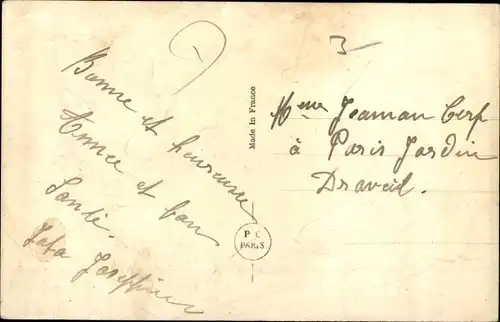 Bonne et heureuse
Année et bon
Santé.
Joséphine
Made In France
P C
PARIS
3
Mme Joaman Cerf
à Paris Jardin
Draveil.